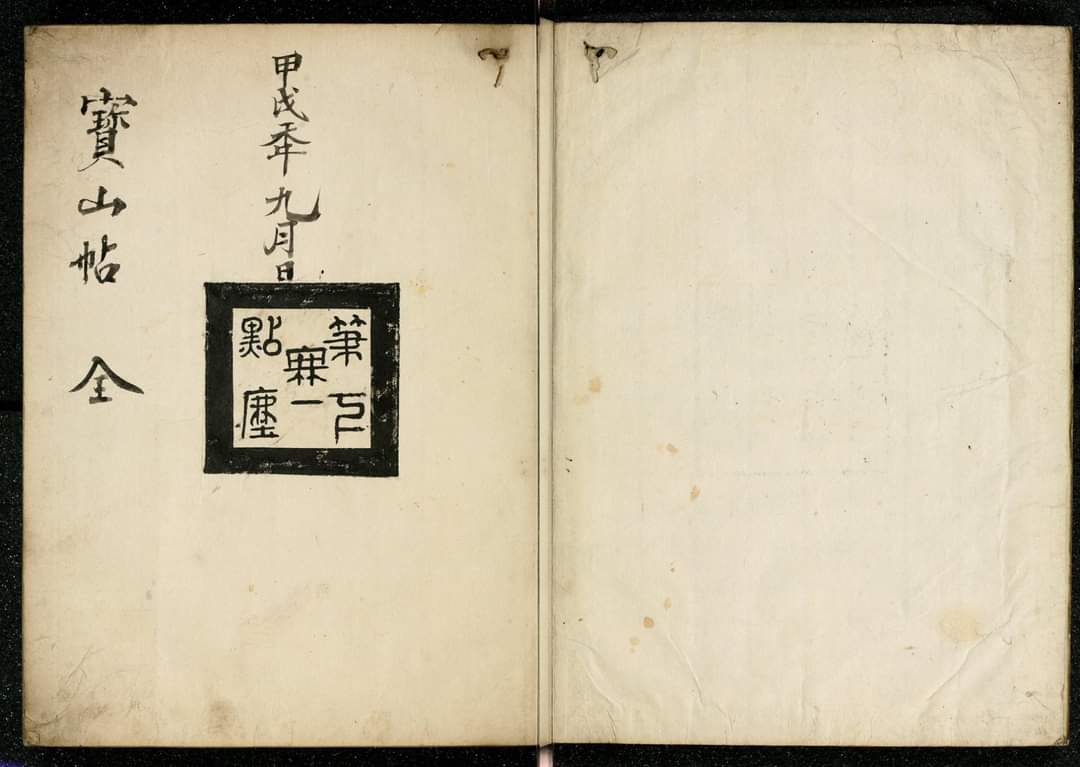 甲戌年九月日
筆下
無一
點塵
寶山帖 全